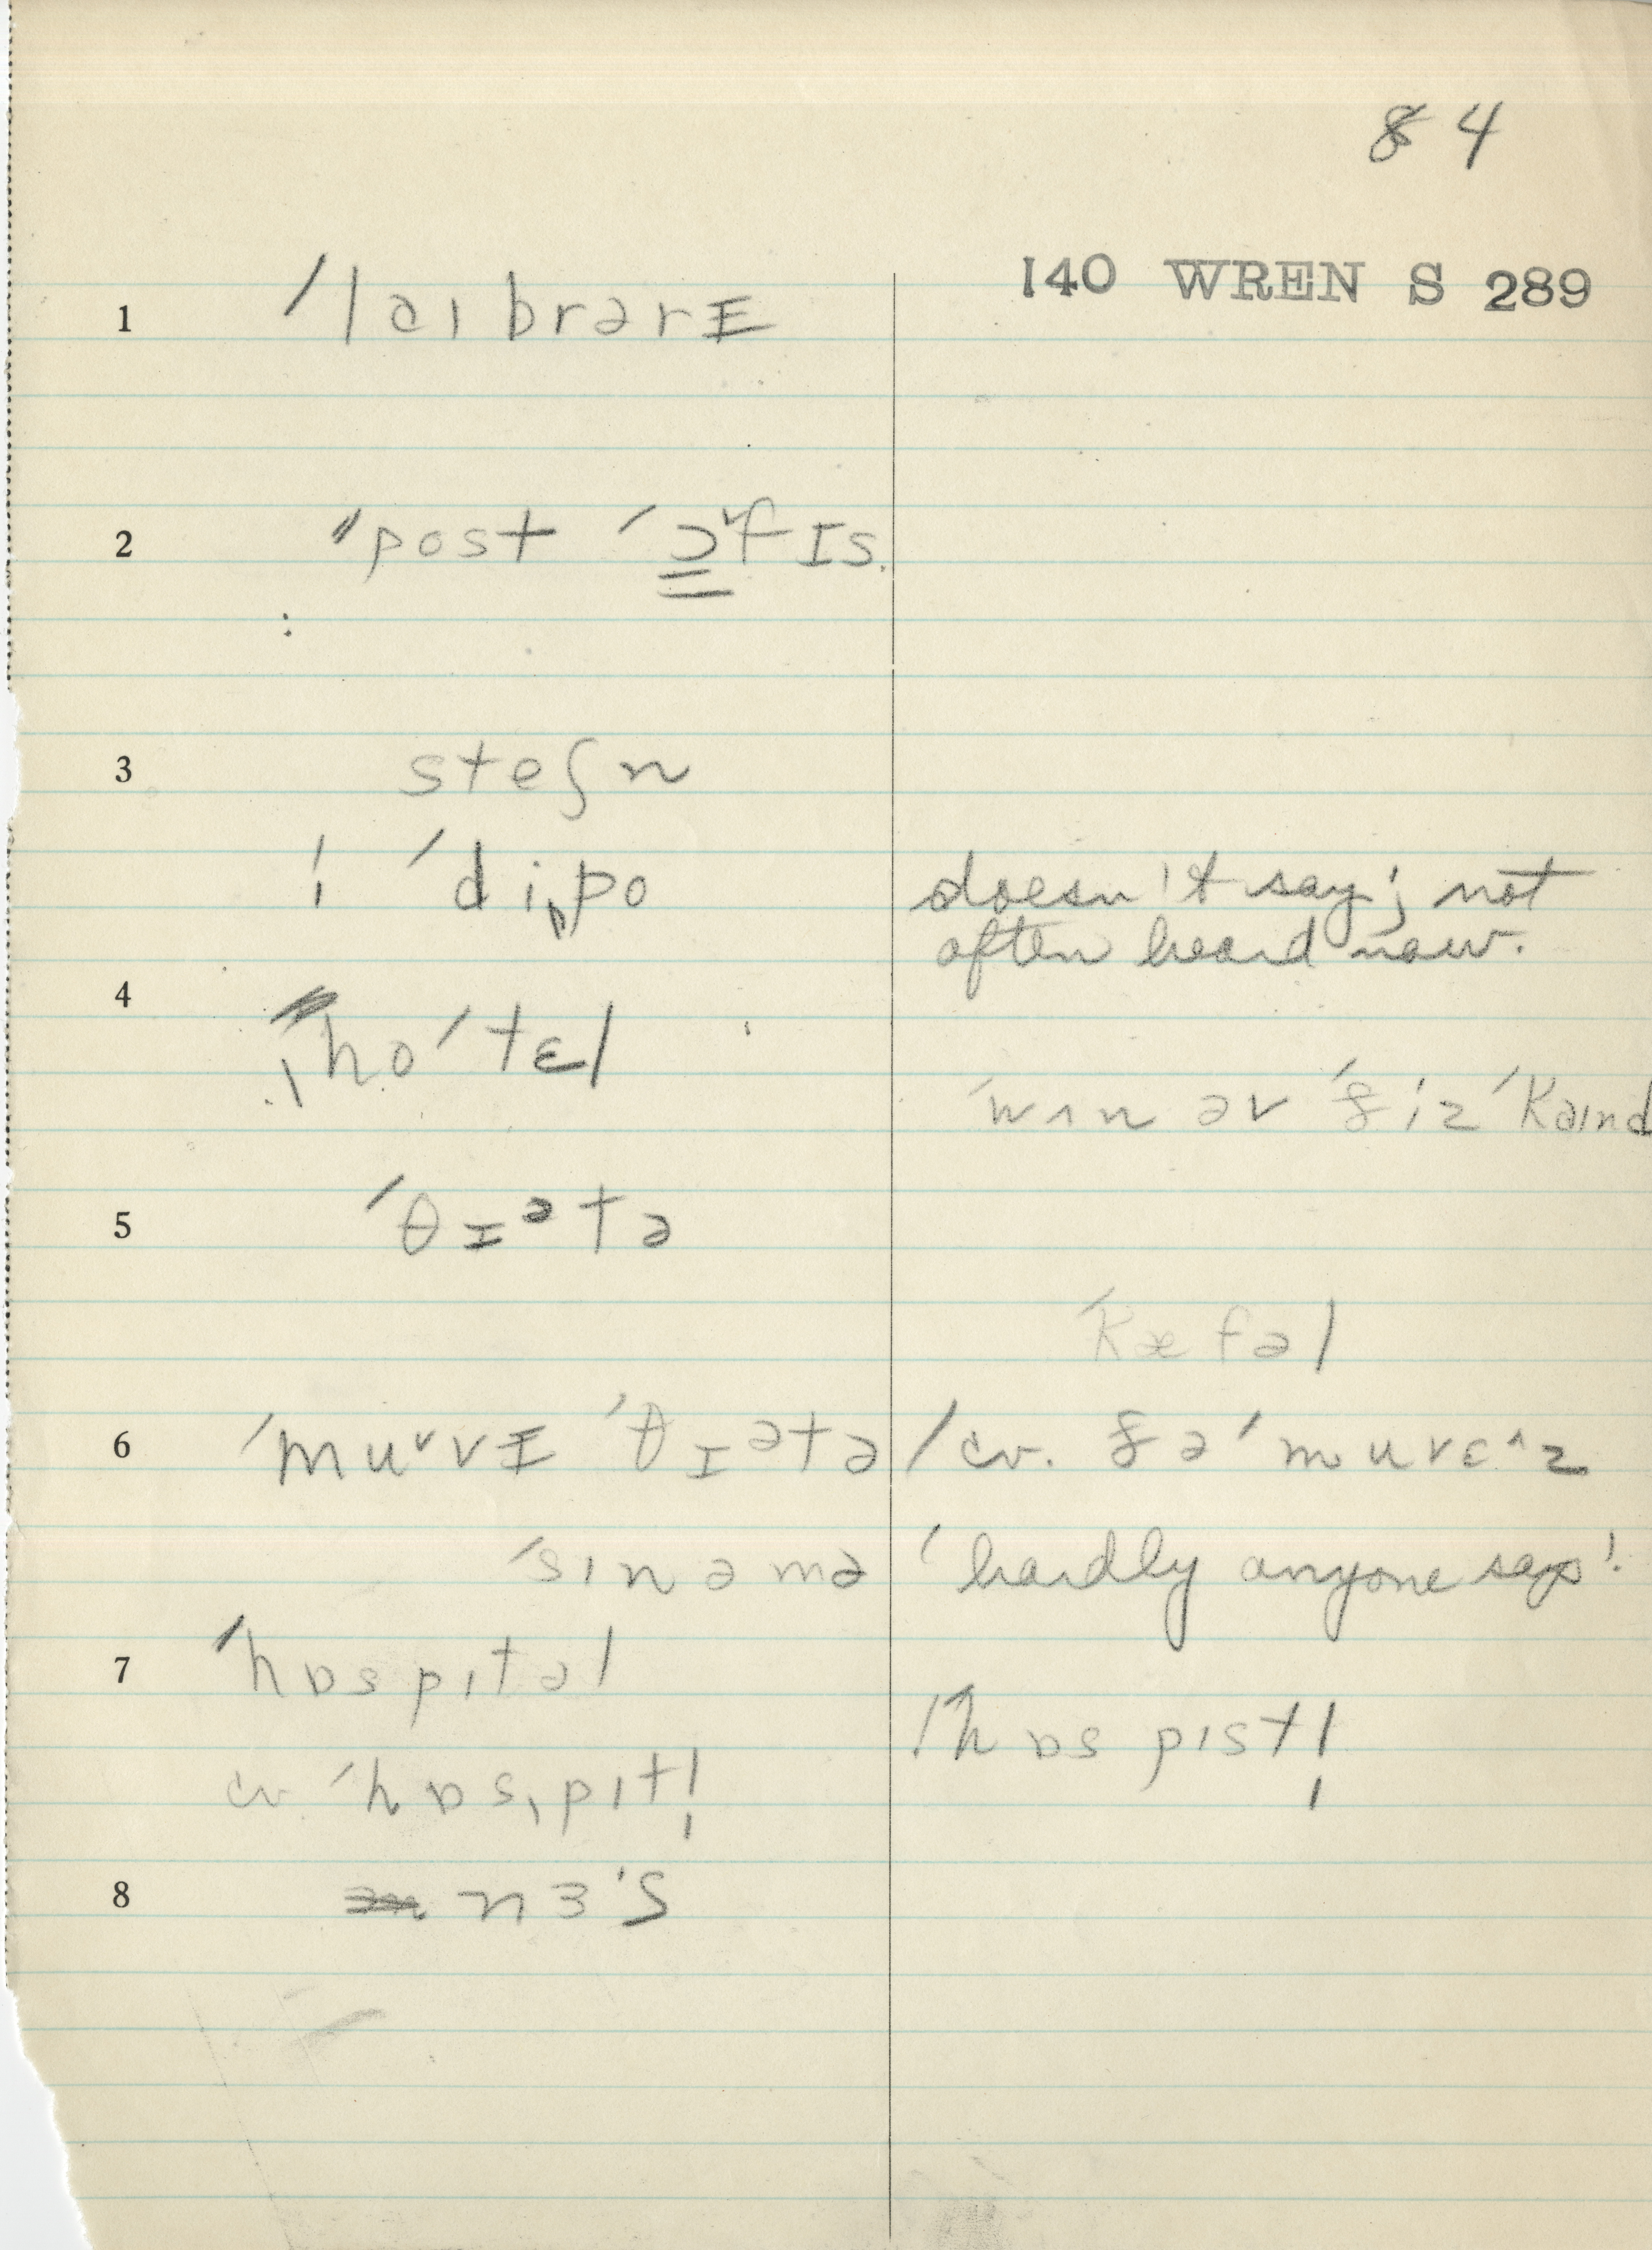 84
140 WREN S 289
1 ˈlaɪbrərɪ
2 ˈˈpost ˈɔ̳˅fɪs.
3 steʃn
¦ ˈdiˌpo doesn't say; not
often heard now.
4 ˌhoˈtɛl
ˈwʌn əv ˈðiz ˈkaɪnd
5 ˈθɪᵊtə
ˈkæfəl
6 ˈmu˅vɪ ˈθɪᵊtə / cv. ðəˈmuvɛ^z
ˈsɪnəmə 'hardly anyone says'.
7 ˈhɒspɪtəl
ˈhɒspɪstl̩
cv. ˈhɒsˌpɪtl̩
8 nɜˑs